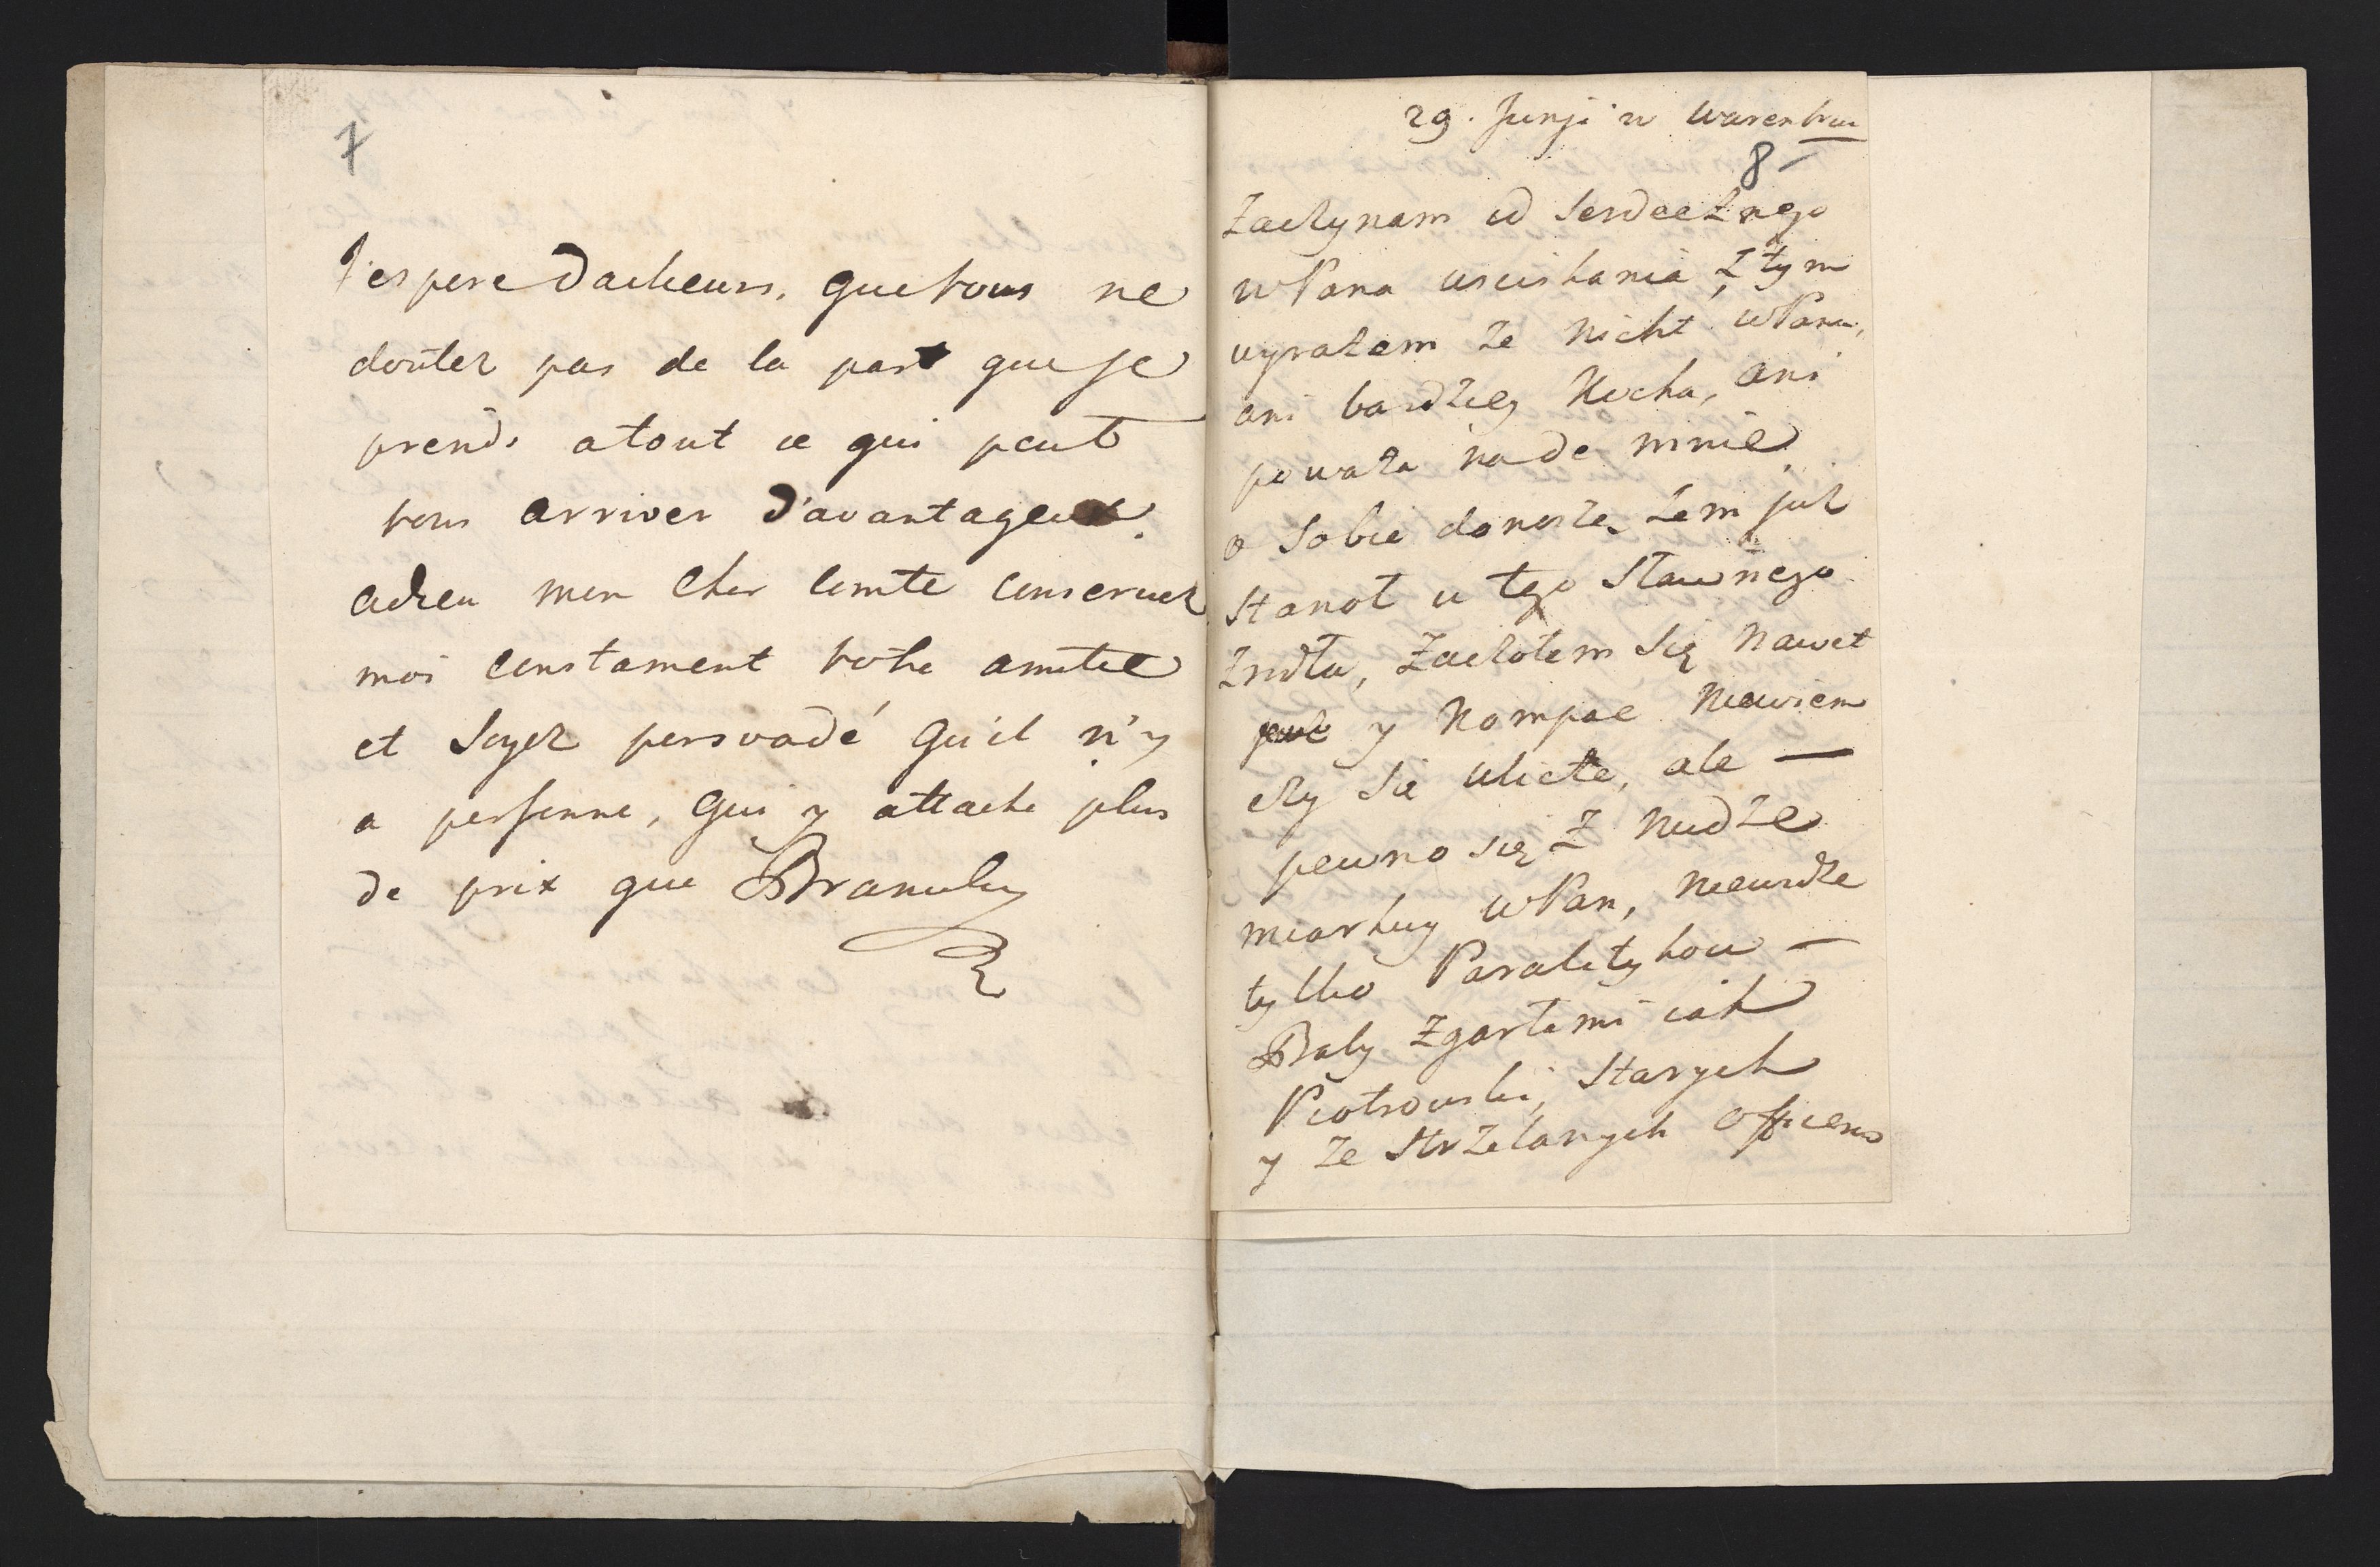 7
J'espere Dailleurs, que vous ne
doutez pas de la part que je
prends atout ce qui peut
vous arriver D'avantageux.
adieu mon Cher Comte conservez
moi constament votre amitié
et Soyez persvadé qu'il n'y
a personne, qui y attache plus
de prix que Branicky
29. Junji w Warenbru
8
Zaczynam od Serdecznego
wPana usciskania, z tym
wyrazem ze nicht wPana,
ani bardziey Kocha, ani
powaza nade mnie
o Sobie donosze, zem juz
Stanoł u tego Sławnego
Zrodła, Zaczołem Się nawet
juz y Kompac niewiem
czy Sie ulicze, ale —
pewno się Z nudze
miarkuy wPan, niewidze
tylko Paralitykow —
Baby Zgartemi iak
Piotrowski, Starych
y Ze Strzelanych officerow